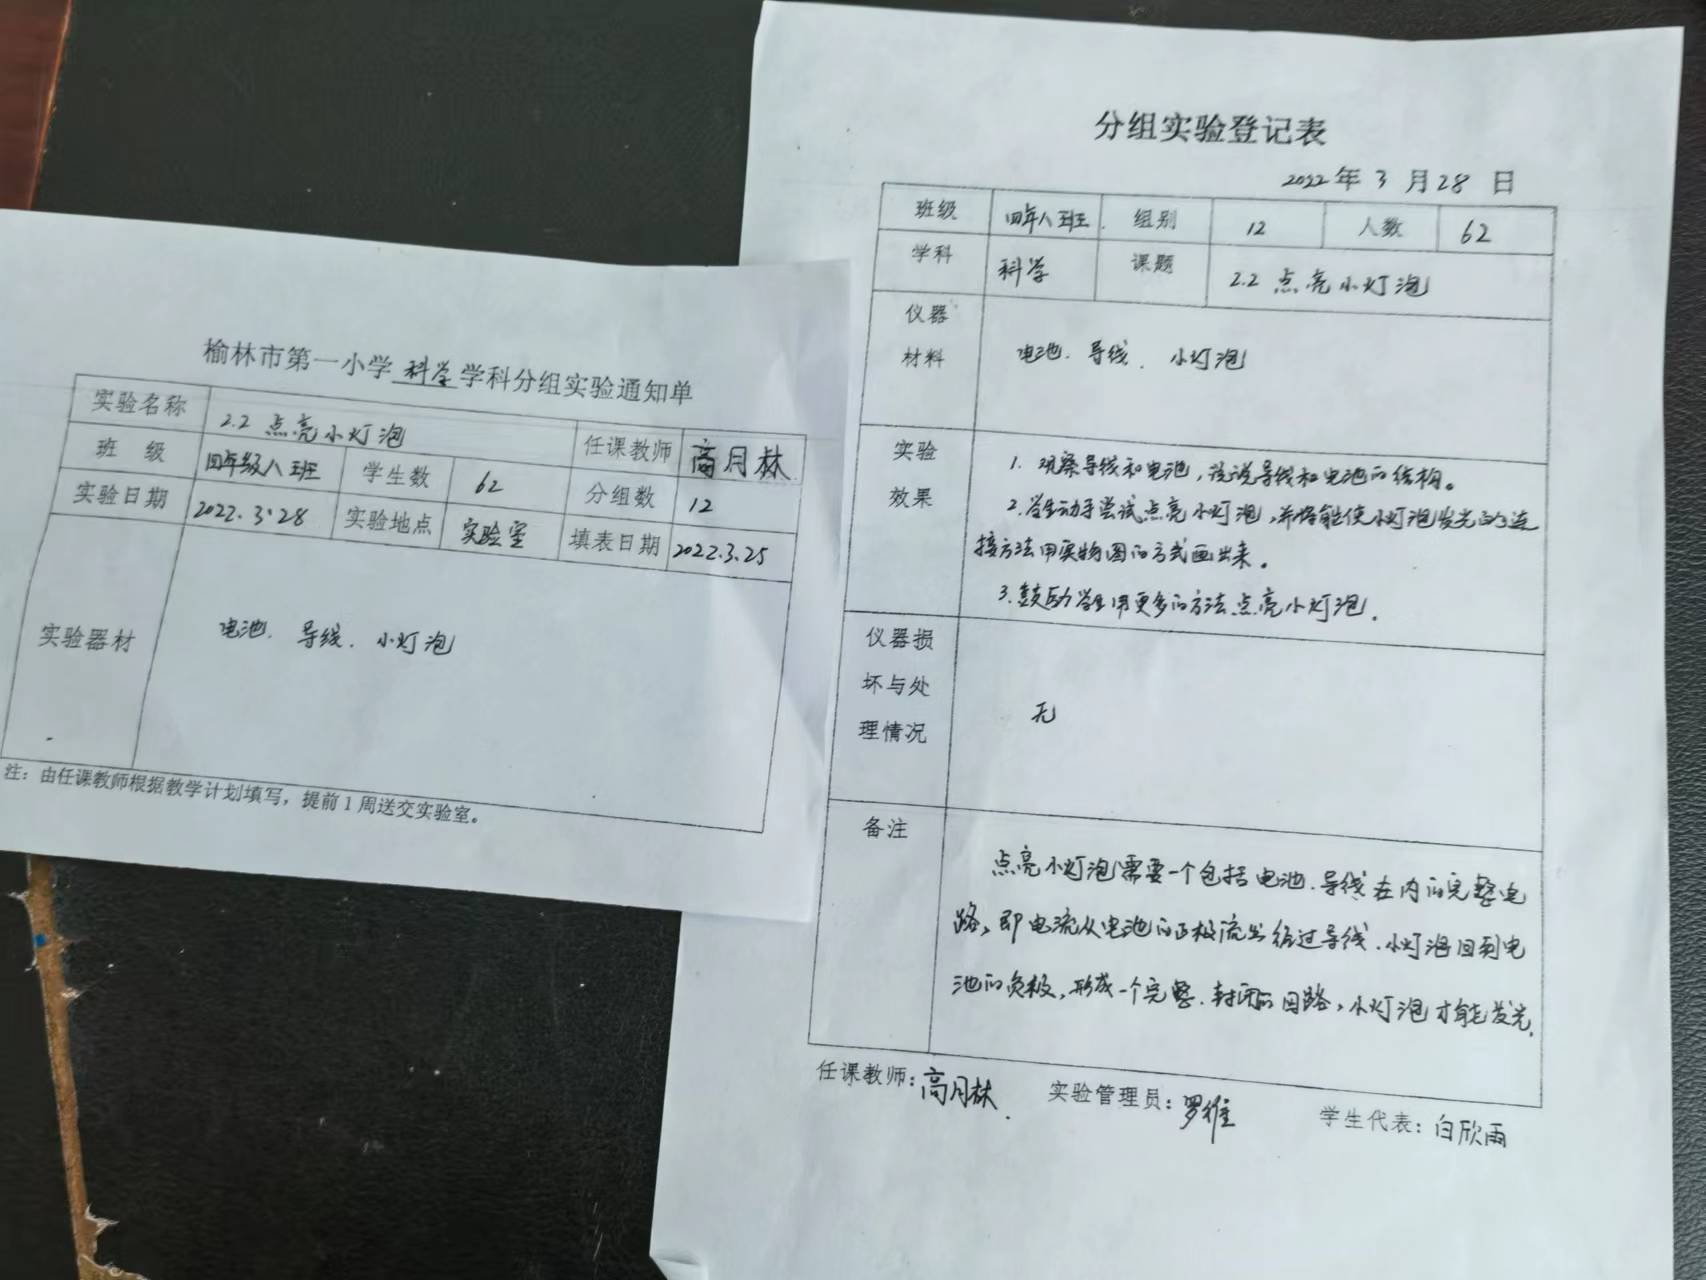 榆林市第一小学科学学科分组实验通知单
实验名称 2.2 点亮小灯泡 任课教师 高月林
班 级 四年级八班 学生数 62 分组数 12
实验日期 2022.3.28 实验地点 实验室 填表日期 2022.3.25
实验器材 电池、导线、小灯泡
注：由任课教师根据教学计划填写，提前1周送交实验室。
分组实验登记表
2022年3月28日
班级 四年八班 组别 12 人数 62
学科 科学 课题 2.2 点亮小灯泡
仪器
材料
电池、导线、小灯泡
实验
效果
1. 观察导线和电池，说说导线和电池的结构。
2. 学生动手尝试点亮小灯泡，并将能使小灯泡发光的连
接方法用实物图的方式画出来。
3. 鼓励学生用更多的方法点亮小灯泡。
仪器损
坏与处
理情况
无
备注
点亮小灯泡需要一个包括电池、导线在内的完整电
路，即电流从电池的正极流出经过导线、小灯泡回到电
池的负极，形成一个完整、封闭的回路，小灯泡才能发光。
任课教师：高月林 实验管理员：罗维 学生代表：白欣雨